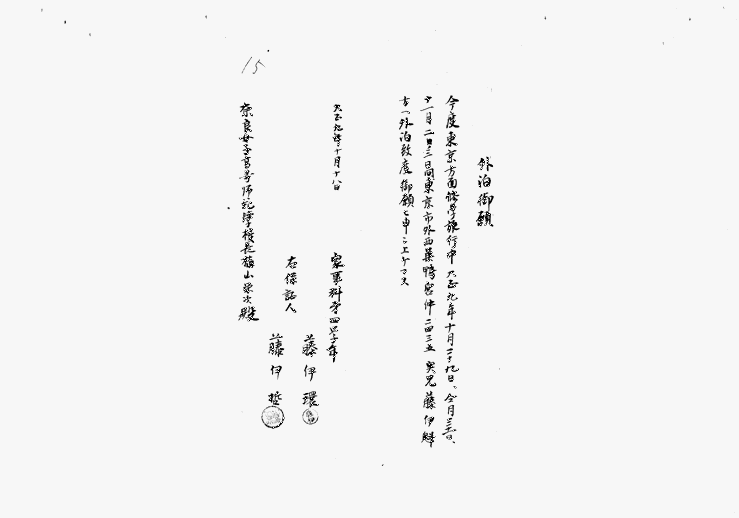 15
外泊御願
今度東京方面修学旅行中大正九年十月二十九日、仝月三十一日、
十一月二日三日間東京市外西巣鴨宮仲二四三五 実兄 藤伊
方ヘ外泊致度御願ヒ申シ上ゲマス
大正九年十月十八日
家事科第四学年
藤伊環
右保証人
藤伊哲
奈良女子高等師範学校長槇山栄次殿